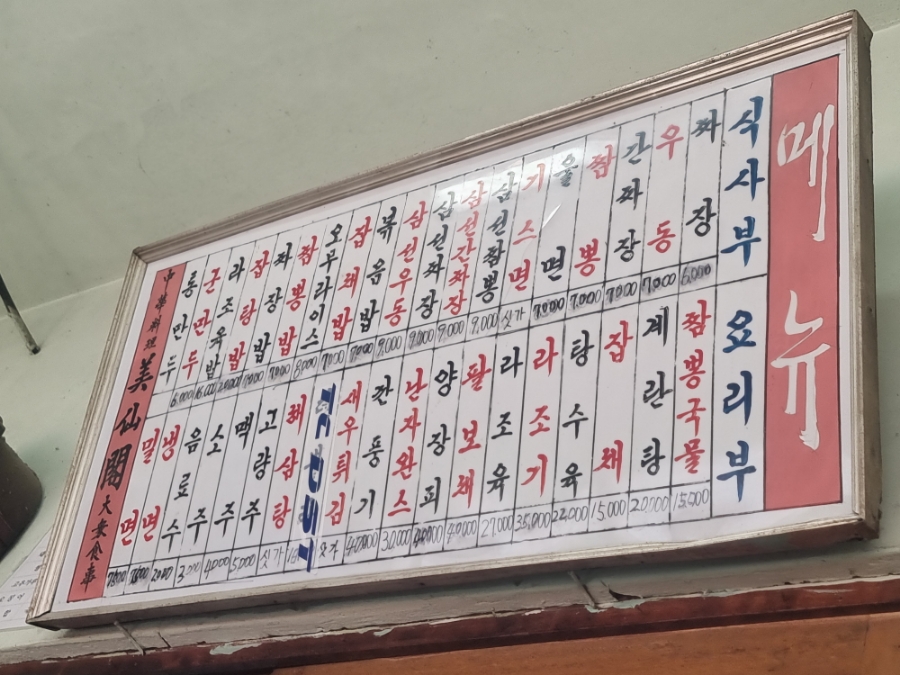 메뉴
식사부
짜장 6,000
우동 7,000
간짜장 7,000
짬뽕 7,000
울면 7,000
기스면 싯가
삼선짬뽕 9,000
삼선간짜장 9,000
삼선짜장 9,000
삼선우동 9,000
볶음밥
잡채밥
오무라이스
짬뽕밥
짜장밥
잡탕밥
라조육밥
군만두
통만두
요리부
짬뽕국물 15,000
계란탕
잡채 15,000
탕수육 22,000
라조기 35,000
라조육 27,000
팔보채 40,000
양장피
난자완스 30,000
깐풍기 40,000
새우튀김 싯가
해삼탕
고량주
맥주
소주
음료수
냉면
밀면
中華料理 美仙閣 大衆食事